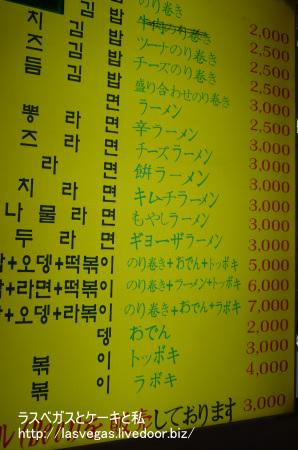 のり巻き 2,000
김 밥 牛肉のり巻き 2,500
치 김 밥 ツーナのり巻き 2,500
즈 김 밥 チーズのり巻き 3,000
듬 김 밥 盛り合わせのり巻き
라 면 ラーメン 2,500
뽕 라 면 辛ラーメン 3,000
즈 라 면 チーズラーメン 3,000
라 면 餅ラーメン 3,000
치 라 면 キムチラーメン 3,000
나 물 라 면 もやしラーメン 3,000
두 라 면 ギョーザラーメン
+오뎅+떡볶이 のり巻き+おでん+トッポキ 5,000
+라면+떡볶이 のり巻き+ラーメン+トッポキ 6,000
+오뎅+라볶이 のり巻き+おでん+ラボキ 7,000
뎅 おでん 2,000
볶 이 トッポキ 3,000
볶 이 ラボキ 4,000
しております 3,000
ラスベガスとケーキと私
http://lasvegas.livedoor.biz/